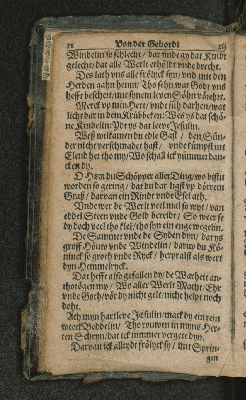 12 Van der Gebordt
Windelin so schlecht / dar finde gy dat Kindt
gelecht / dat alle Werlt erhöldt unde drecht.
Des lath uns alle frölyck syn / und mit den
Herden gahn henin / Tho sehn wat God / uns
hefft bescheret / mit synem leven Söhn vörehrt.
Merck up min Herte / unde süh dar hen / wat
licht dar in dem Krübbeken: Wes ys dat schö-
ne Kindelin: Idt ys dat leve Jesulin.
Weß wilkamen du edle Gast / den Sün-
der nicht verschmadet hast / unde kümpst int
Elend her tho my / Wo schal ick ymmer dan-
cken dy.
O Here du Schöpper aller Ding / wo bistu
worden so gering / dat du dar liggst up dörrem
Graß / darvan ein Rindt unde Esel ath.
Unde wer de Welt veelmal so wyt / van
eddel Steen unde Gold bereidt / So weer se
dy doch veel tho klei / tho syn ein enge weegelin.
De Sammet unde de Syden dyn / dat ys
groff Höuw unde Windelin / darup du Kö-
ninck so groth unde Ryck / her pralst als weert
dyn Hemmelryck.
Dat hefft also gefallen dy / de Warheit an-
thotögen my / Wo aller Werlt Macht / Ehr
unde Goth / vör dy nicht gelt / nicht helpt noch
doht.
Ach myn hartleve Jesulin / mack dy ein rein
weeck Beddelin / Tho rouwen in myns Her-
ten Schryn / dat ick nimmer vergete dyn.
Darvan ick alleydt frölyck sy / mit Sprin-
gen